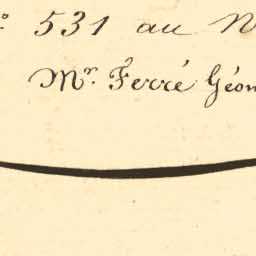 º 531 au N
Mr. Ferré Géom